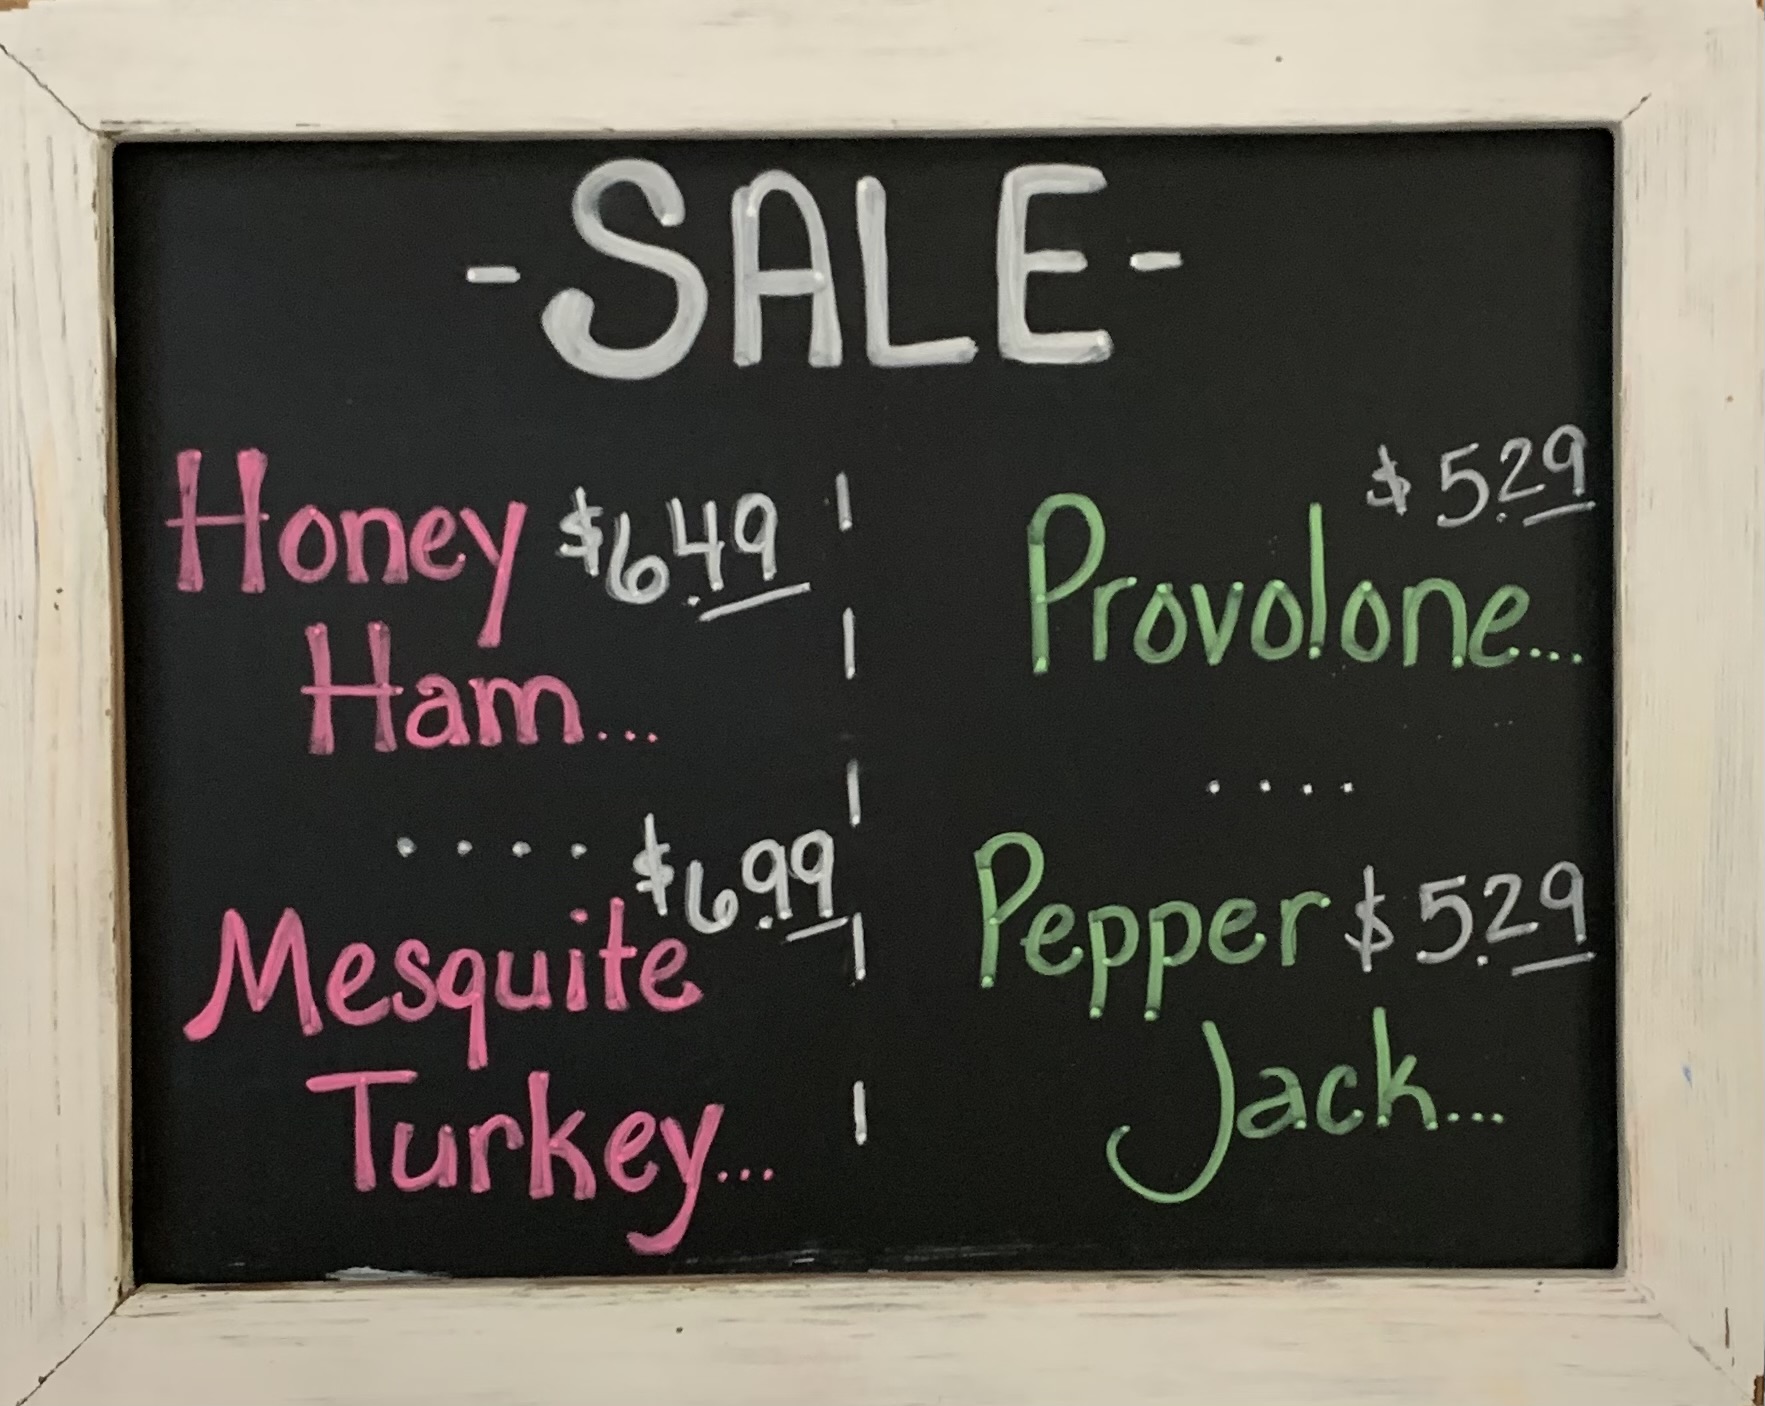 -SALE-
Honey $6.49
Ham...
....
$6.99
Mesquite
Turkey...
$5.29
Provolone...
....
Pepper $5.29
Jack...